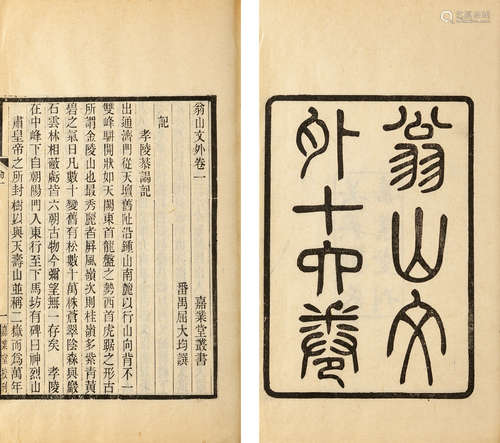 翁山文
外十六卷
翁山文外卷一 嘉業堂叢書
番禺屈大均譔
記
孝陵恭謁記
出通濟門從天壇舊阯沿鍾山南麓以行山向背不一
雙峰駢開狀如天闕東首龍盤之勢西首虎踞之形古
所謂金陵山也最秀麗者屏風嶺次則桂嶺多紫青黃
碧之氣日凡數十變舊有松數十萬株蒼翠陰森與巖
石雲林相蔽虧皆六朝古物今彌望無一存矣 孝陵
在中峰下自朝陽門入東行至下馬坊有碑曰神烈山
肅皇帝之所封樹以與天壽山並稱二嶽而為萬年